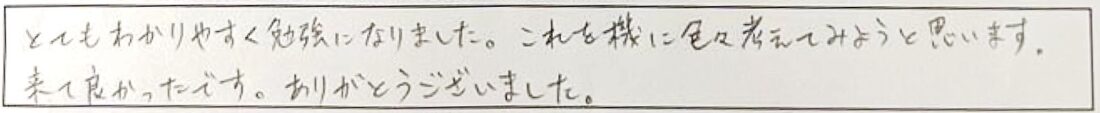 とてもわかりやすく勉強になりました。これを機に色々考えてみようと思います.
来て良かったです。ありがとうございました。